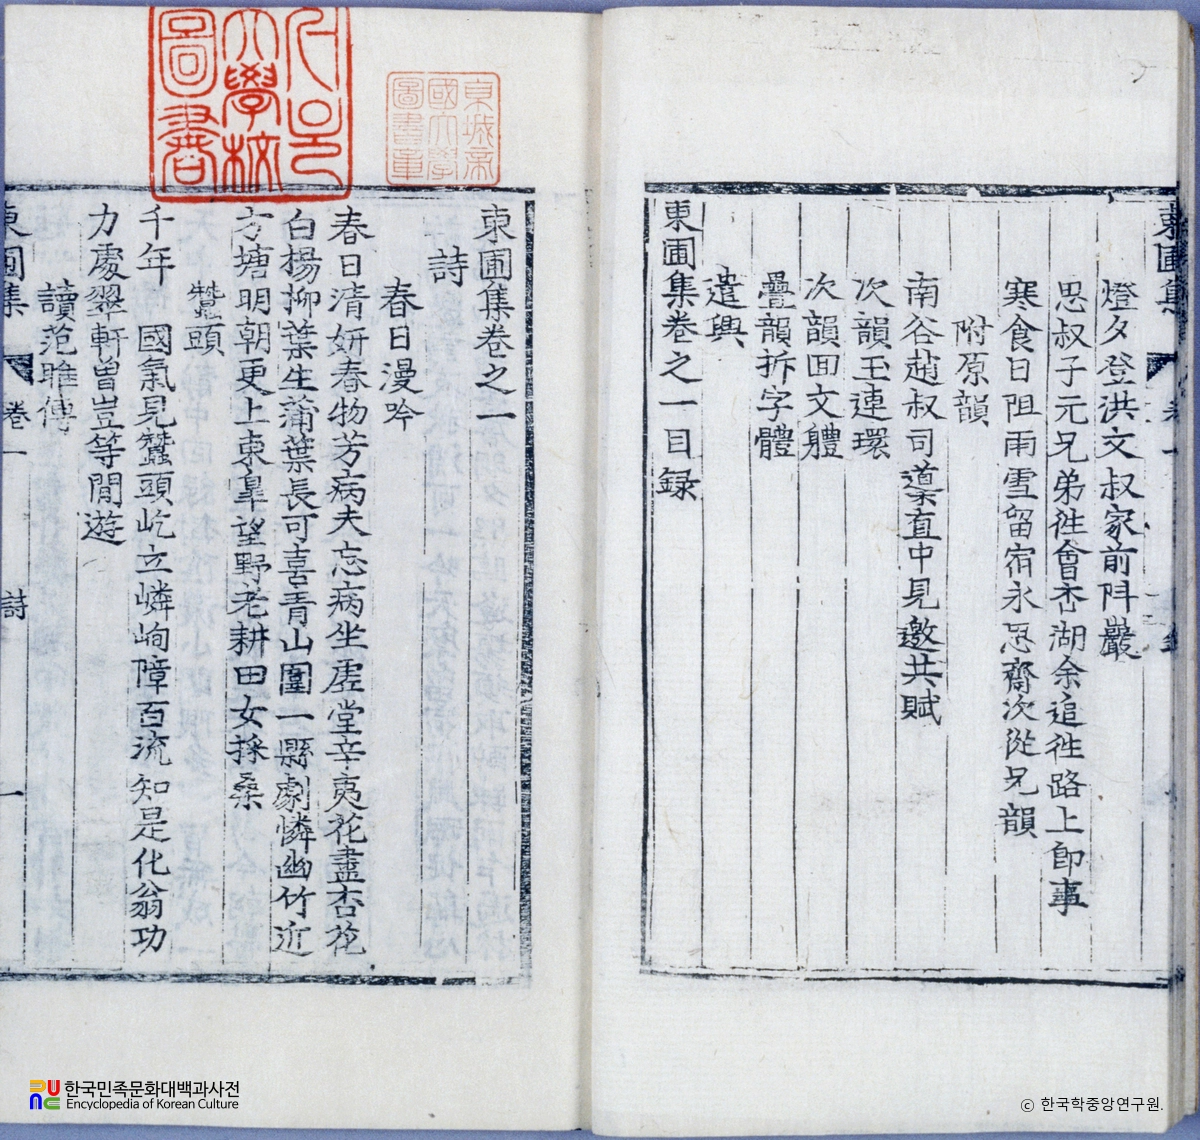 東圃集
燈夕登洪文叔家前阧巖
思叔子元兄弟徃會杏湖余追徃路上卽事
寒食日阻雨雪留宿永思齋次從兄韻
附原韻
南谷趙叔司藁直中見邀共賦
次韻玉連環
次韻回文體
疊韻拆字體
遣興
東圃集卷之一目録
東圃集卷之一
詩
春日漫吟
春日清姸春物芳病夫忘病坐虛堂辛夷花盡杏花
白楊柳葉生蒲葉長可喜靑山圍一縣劇憐幽竹近
方塘明朝更上東臯望野老耕田女採桑
蠶頭
千年國氣見蠶頭屹立嶙峋障百流知是化翁功
力處翠軒曾豈等閒遊
讀范雎傳
東圃集 卷一 詩 一
東城帝
國大學
圖書章
大學校
圖書
한국민족문화대백과사전
Encyclopedia of Korean Culture
ⓒ 한국학중앙연구원.